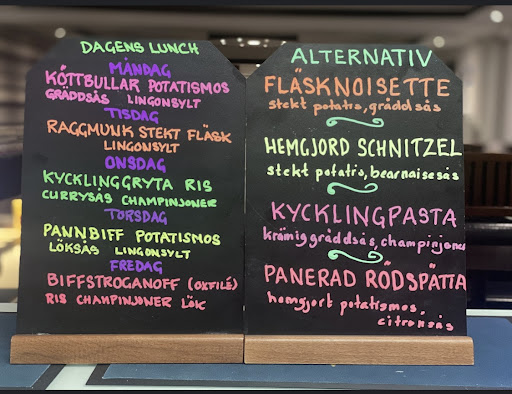 DAGENS LUNCH
MÅNDAG
KÖTTBULLAR POTATISMOS
GRÄDDSÅS LINGONSYLT
TISDAG
RAGGMUNK STEKT FLÄSK
LINGONSYLT
ONSDAG
KYCKLINGGRYTA RIS
CURRYSÅS CHAMPINJONER
TORSDAG
PANNBIFF POTATISMOS
LÖKSÅS LINGONSYLT
FREDAG
BIFFSTROGANOFF (OXFILÉ)
RIS CHAMPINJONER LÖK
ALTERNATIV
FLÄSKNOISETTE
stekt potatis, gräddsås
HEMGJORD SCHNITZEL
stekt potatis, bearnaisesås
KYCKLINGPASTA
krämig gräddsås, champinjoner
PANERAD RÖDSPÄTTA
hemgjort potatismos,
citronsås